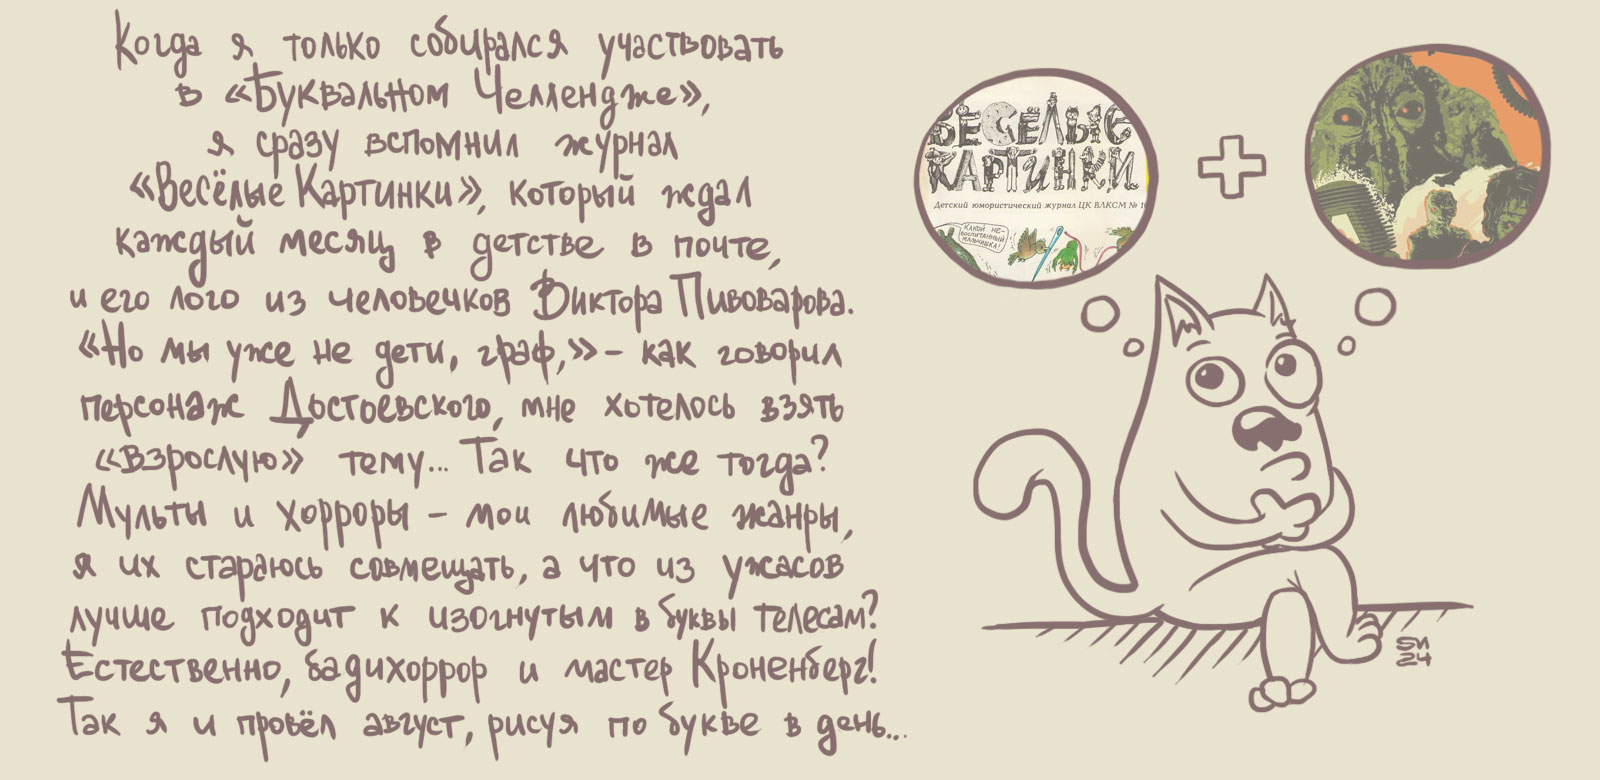 Когда я только собирался участвовать
в «Буквальном Челлендже»,
я сразу вспомнил журнал
«Весёлые Картинки», который ждал
каждый месяц в детстве в почте,
и его лого из человечков Виктора Пивоварова.
«Но мы уже не дети, граф,» – как говорил
персонаж Достоевского, мне хотелось взять
«взрослую» тему... Так что же тогда?
Мульты и хорроры – мои любимые жанры,
я их стараюсь совмещать, а что из ужасов
лучше подходит к изогнутым в буквы телесам?
Естественно, бадихоррор и мастер Кроненберг!
Так я и провёл август, рисуя по букве в день...
ВЕСЁЛЫЕ
КАРТИНКИ
Детский юмористический журнал ЦК ВЛКСМ № 1
КАКОЙ НЕ-
ВОСПИТАННЫЙ
МАЛЬЧИШКА!
+
ЅИ
24